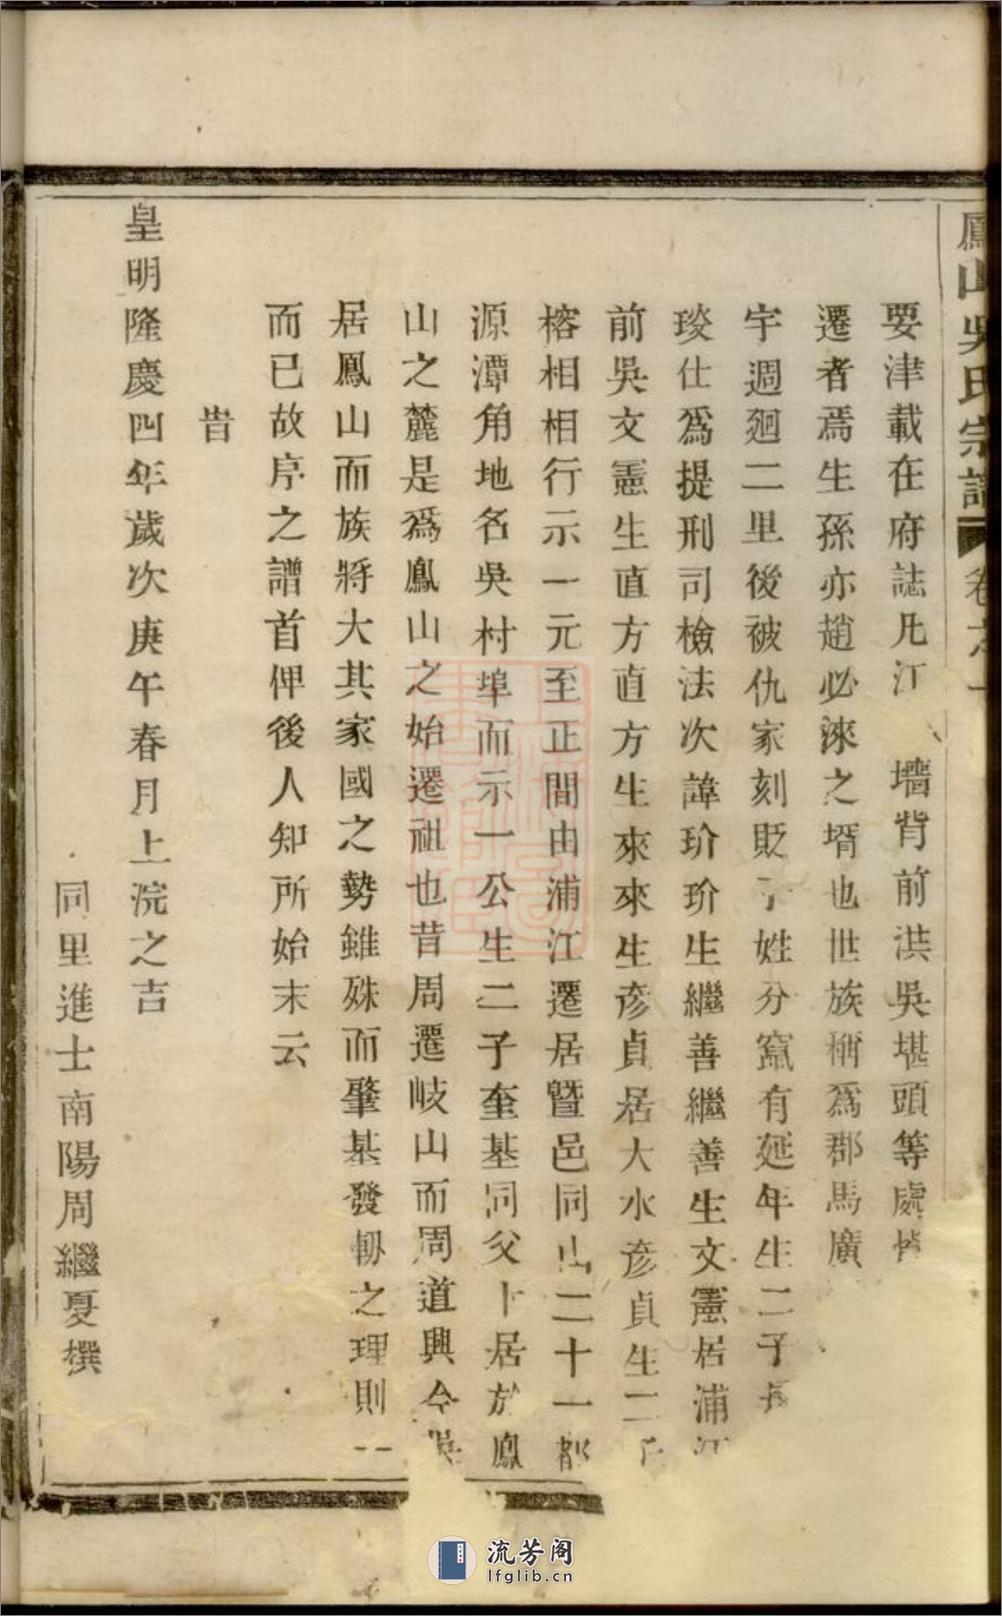 鳳山吳氏宗譜 卷之一
要津載在府誌凡江 墻背前洪吳堪頭等處
遷者焉生孫亦趙必淶之壻也世族稱爲郡馬廣
宇週廻二里後被仇家刻貶 姓分竄有延年生二子長
琰仕爲提刑司檢法次諱玠玠生繼善繼善生文憲居浦江
前吳文憲生直方直方生來來生彥貞居大水彥貞生二子
榕相相行示一元至正間由浦江遷居曁邑同山二十一都
源潭角地名吳村埠而示一公生二子奎基同父卜居於鳳
山之麓是爲鳳山之始遷祖也昔周遷岐山而周道興今吳
居鳳山而族將大其家國之勢雖殊而肇基發軔之理則一
而已故序之譜首俾後人知所始末云
旹
皇明隆慶四年歲次庚午春月上浣之吉
同里進士南陽周繼夏撰
流芳阁
lfglib.cn